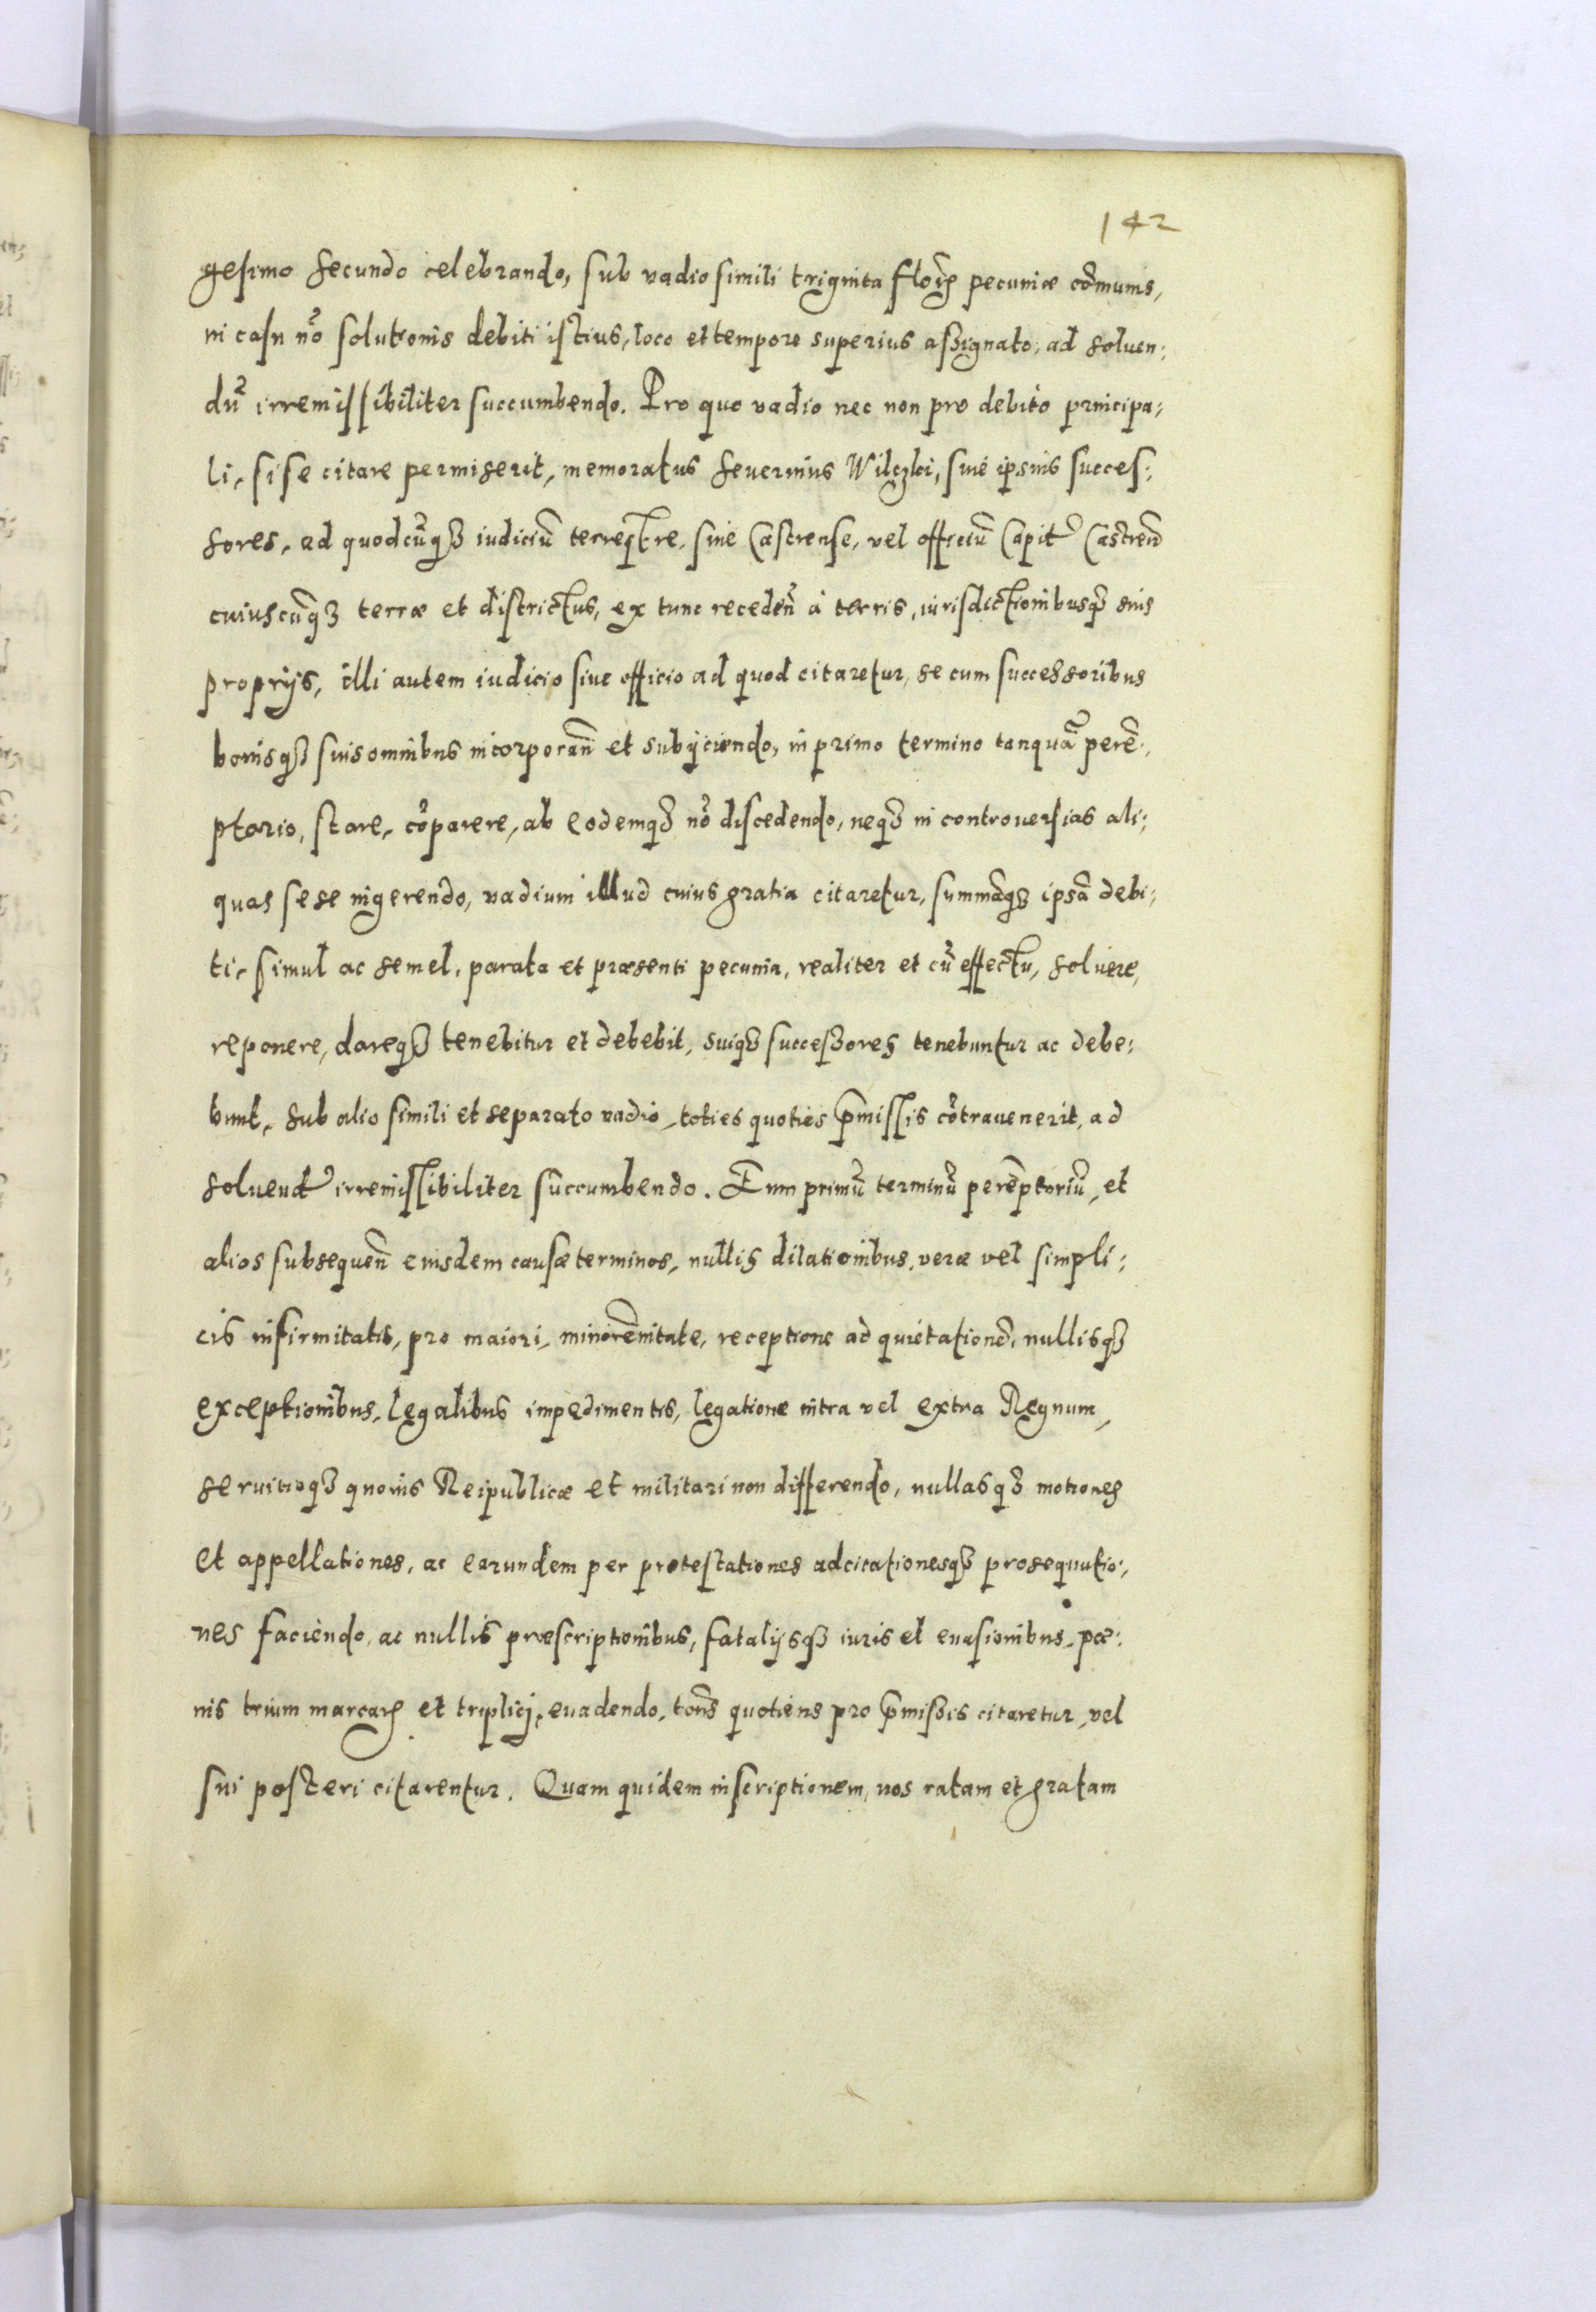 142
gesimo secundo celebrando, sub vadio simili triginta floꝝ pecuniæ cõmunis,
in casu nõ solutionis debiti istius, loco et tempore superius assignato, ad soluen:
dũ irremissibiliter succumbendo. Pro quo vadio nec non pro debito principa:
li, si se citare permiserit, memoratus Seuerinus Wilczki, siue ipsius succes:
sores, ad quodcũqꝫ iudiciũ terrestre, siue Castrense, vel officiũ Capit Castreñ
cuiuscũqꝫ terræ et districtus, ex tunc recedeñ à terris, iurisdictionibusqꝫ suis
proprijs, illi autem iudicio siue officio ad quod citaretur, se cum successoribus
bonisqꝫ suis omnibus incorporañ et subijciendo, in primo termino tanquã perẽ:
ptorio, stare, cõparere, ab eodemqꝫ nõ discedendo, neqꝫ in controuersias ali:
quas sese ingerendo, vadium illud cuius gratia citaretur, summãqꝫ ipsã debi:
ti, simul ac semel, parata et præsenti pecunia, realiter et cũ effectu, soluere,
reponere, dareqꝫ tenebitur et debebit, suiqꝫ successores tenebuntur ac debe:
bunt, sub alio simili et separato vadio, toties quoties p̃missis cõtrauenerit, ad
soluend irremissibiliter succumbendo. Eum primũ terminũ perẽptoriũ, et
alios subsequeñ eiusdem causæ terminos, nullis dilationibus, veræ vel simpli:
cis infirmitatis, pro maiori, minorẽnitate, receptione ad quietationẽ, nullisqꝫ
exceptionibus, legalibus impedimentis, legatione intra vel extra Regnum,
seruitioqꝫ quouis Reipublicæ et militari non differendo, nullasqꝫ motiones
et appellationes, ac earundem per protestationes adcitationesqꝫ prosequutio:
nes faciendo, ac nullis præscriptionibus, fatalijsqꝫ iuris et euasionibus, pœ:
nis trium marcaꝝ et triplicj, euadendo, toñs quotiens pro p̃missis citaretur, vel
sui posteri citarentur. Quam quidem inscriptionem, nos ratam et gratam